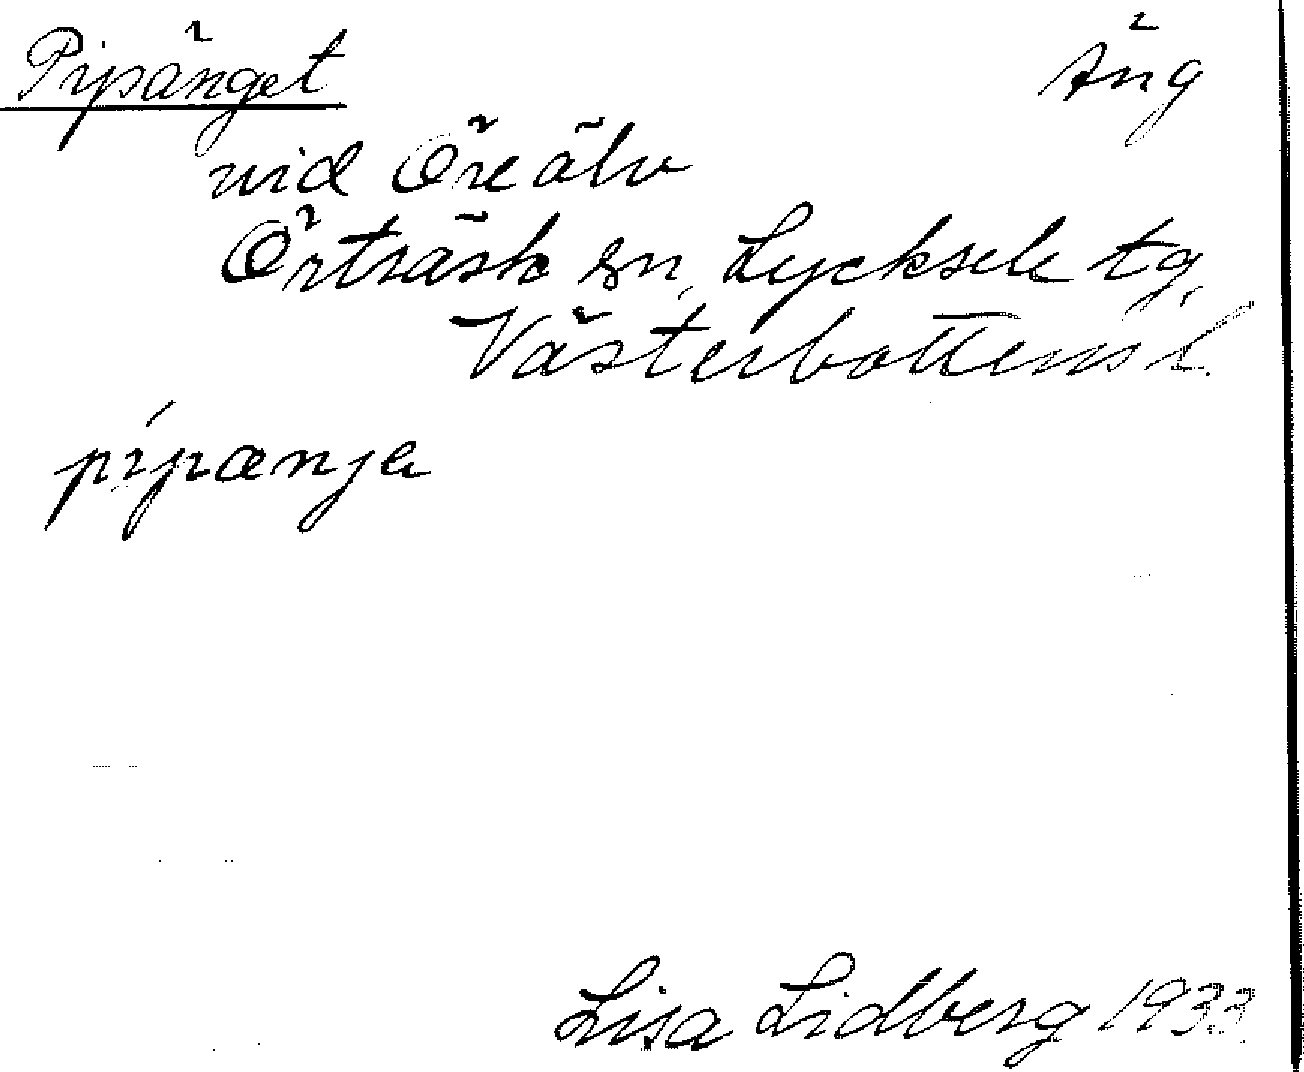 Pipänget Äng
vid Öre älv
Örträsk sn, Lycksele tg,
Västerbottens l.
pípænja
Lisa Lidberg 1933.